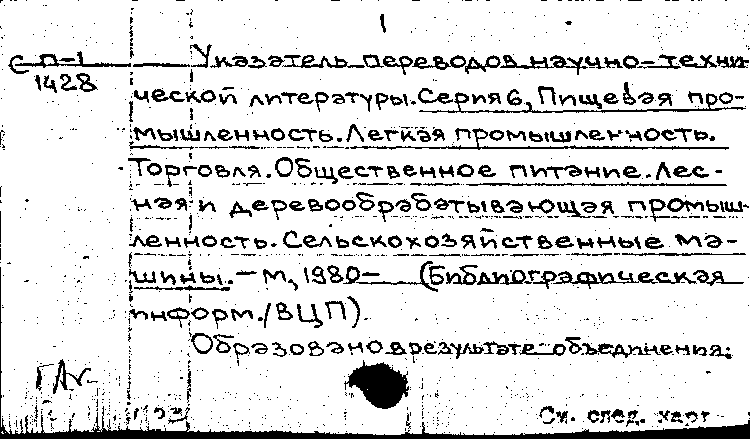 1
С П-1 Указатель переводов научно-техни-
1428
ческой литературы. Серия 6, Пищевая про-
мышленность. Легкая промышленность.
Торговля. Общественное питание. Лес-
ная и деревообрабатывающая промыш-
ленность. Сельскохозяйственные ма-
шины. – М, 1980– (Библиографическая
информ. / ВЦП).
Образовано в результате объединения:
См. след. карт